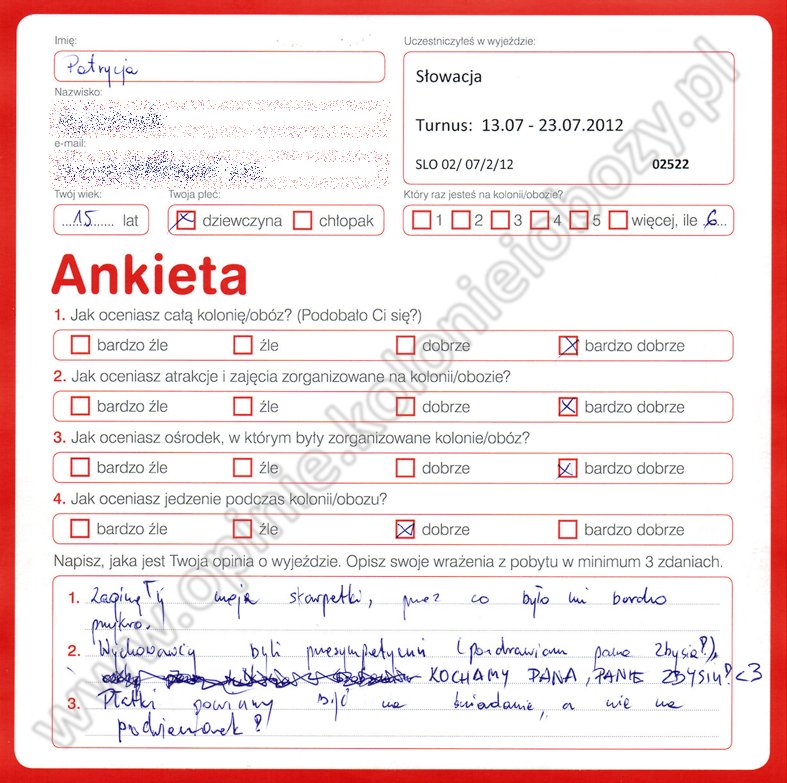 Imię:
Patrycja
Nazwisko:
e-mail:
Twój wiek:
15 lat
Twoja płeć:
dziewczyna chłopak
Uczestniczyłeś w wyjeździe:
Słowacja
Turnus: 13.07 - 23.07.2012
SLO 02/ 07/2/12 02522
Który raz jesteś na kolonii/obozie?
1 2 3 4 5 więcej, ile 6
Ankieta
1. Jak oceniasz całą kolonię/obóz? (Podobało Ci się?)
bardzo źle źle dobrze bardzo dobrze
2. Jak oceniasz atrakcje i zajęcia zorganizowane na kolonii/obozie?
bardzo źle źle dobrze bardzo dobrze
3. Jak oceniasz ośrodek, w którym były zorganizowane kolonie/obóz?
bardzo źle źle dobrze bardzo dobrze
4. Jak oceniasz jedzenie podczas kolonii/obozu?
bardzo źle źle dobrze bardzo dobrze
Napisz, jaka jest Twoja opinia o wyjeździe. Opisz swoje wrażenia z pobytu w minimum 3 zdaniach.
1. Zaginęły moje skarpetki, przez co było mi bardzo
przykro.
2. Wychowawcy byli przesympatyczni (pozdrawiam pana Zbysia!),
KOCHAMY PANA, PANIE ZBYSIU! <3
3. Płatki powinny być na śniadanie, a nie na
podwieczorek!
www.opinie.kolonieiobozy.pl